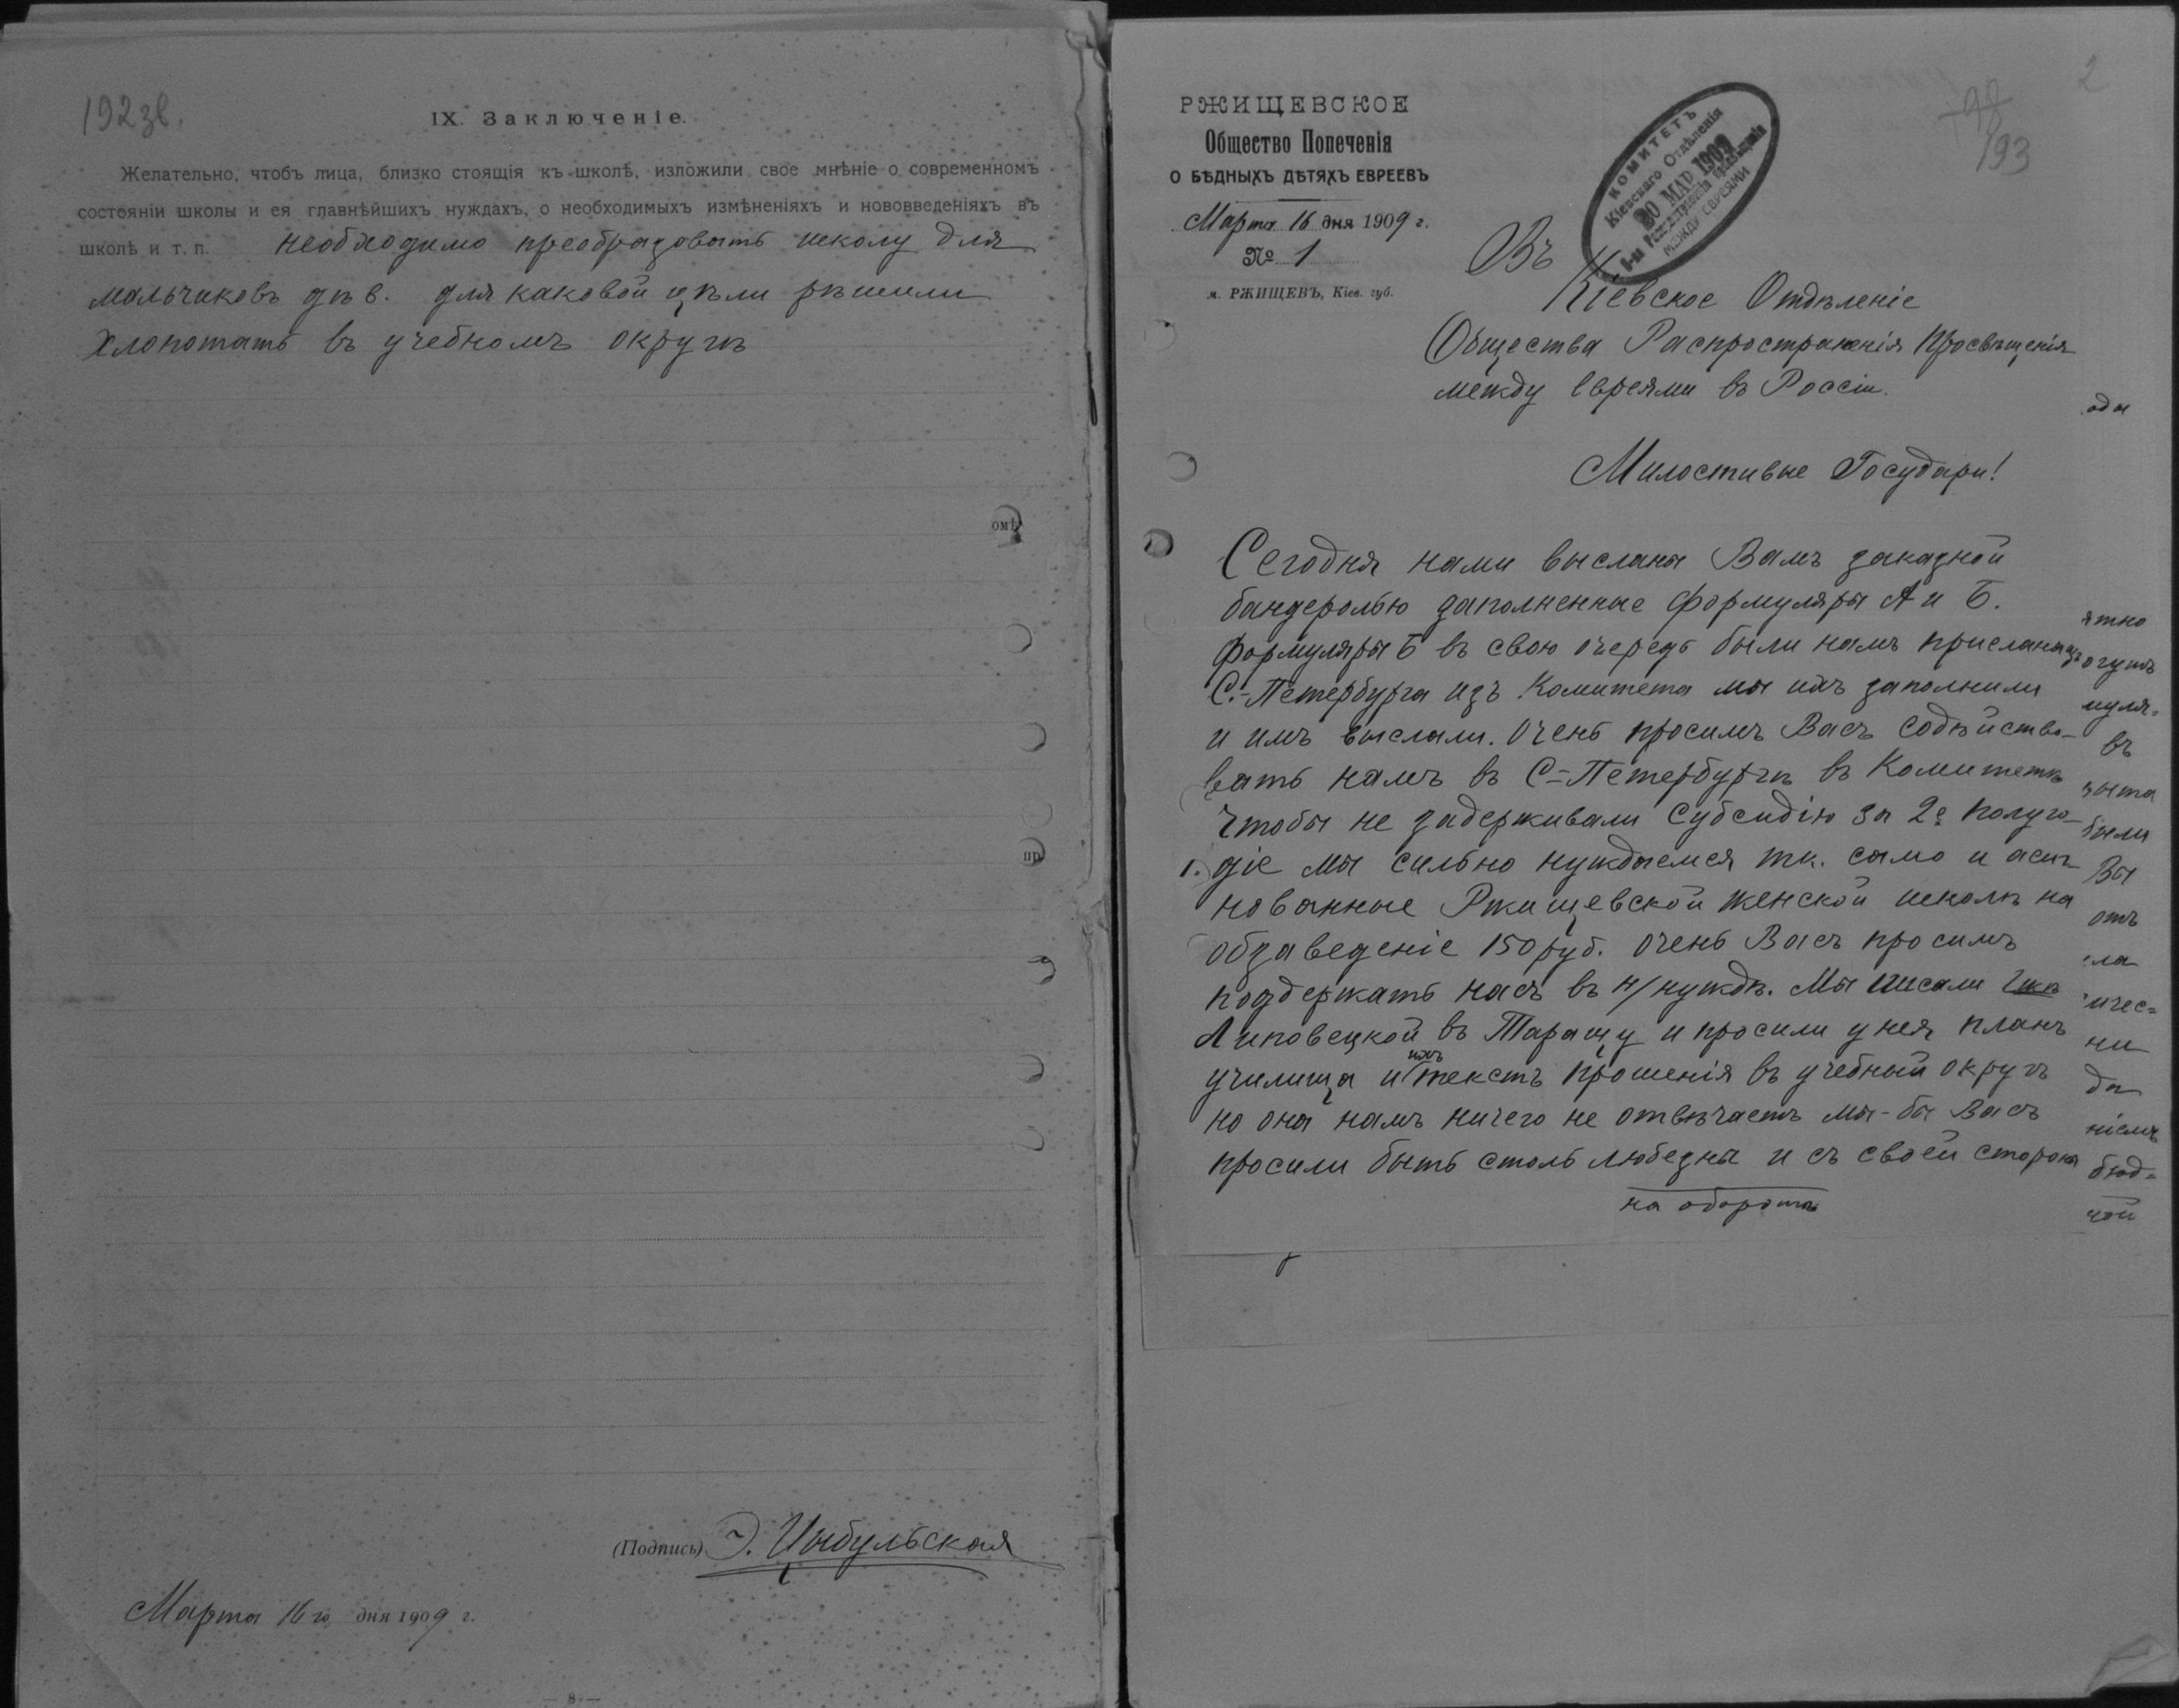 192зв.
IX. Заключеніе.
Желательно, чтобъ лица, близко стоящія къ школѣ, изложили свое мнѣніе о современномъ
состояніи школы и ея главнѣйшихъ нуждахъ, о необходимыхъ измѣненіяхъ и нововведеніяхъ въ
школѣ и т. п. необходимо преобразовать школу для
мальчиковъ для каковой цѣли рѣшили
хлопотать въ учебномъ округѣ
омѣ
пр
(Подпись) Э. Цыбульская
Марта 16го дня 1909 г.
— 8 —
2
193
РЖИЩЕВСКОЕ
Общество Попеченія
О БѢДНЫХЪ ДѢТЯХЪ ЕВРЕЕВЪ
Марта 16 дня 1909 г.
№ 1
м. РЖИЩЕВЪ, Кіев. губ.
КОМИТЕТЪ
Кіевскаго Отдѣленія
20 МАР 1909
О-ва Распространенія Просвѣщенія
МЕЖДУ ЕВРЕЯМИ
Въ
Кіевское Отдѣленіе
Общества Распространенія Просвѣщенія
между Евреями въ Россіи.
Милостивые Государи!
Сегодня нами выслана Вамъ заказной
бандеролью заполненные формуляры А и Б.
Формуляры Б въ свою очередь были намъ присланы изъ
С.-Петербурга изъ Комитета мы ихъ заполнили
и имъ выслали. Очень просимъ Васъ содѣйство-
вать намъ въ С-Петербургѣ въ Комитетѣ
чтобы не задерживали субсидію за 2е полуго-
діе мы сильно нуждаемся тк. само и асиг
нованные Ржищевской женской школѣ на
обзаведеніе 150 руб. Очень Васъ просимъ
поддержать насъ въ н/нуждѣ. Мы писали Гжѣ
Липовецкой въ Таращу и просили у нея планъ
училища и ихъ текстъ прошенія въ учебный округъ
но она намъ ничего не отвѣчаетъ мы-бы Васъ
просили быть столь любезны и съ своей стороны
на оборотѣ
ода
ятно
огутъ
муля-
въ
были
Вы
отъ
ла
ичес=
ни
да
ніемъ
бюд=
ной